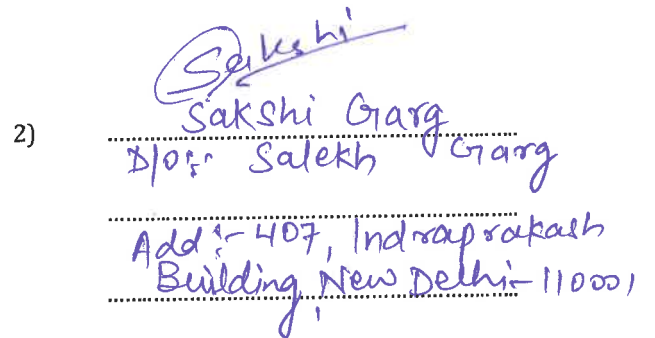 Sakshi
2) Sakshi Garg
D/O:- Salekh Garg
Add:- 407, Indraprakash
Building, New Delhi-110001